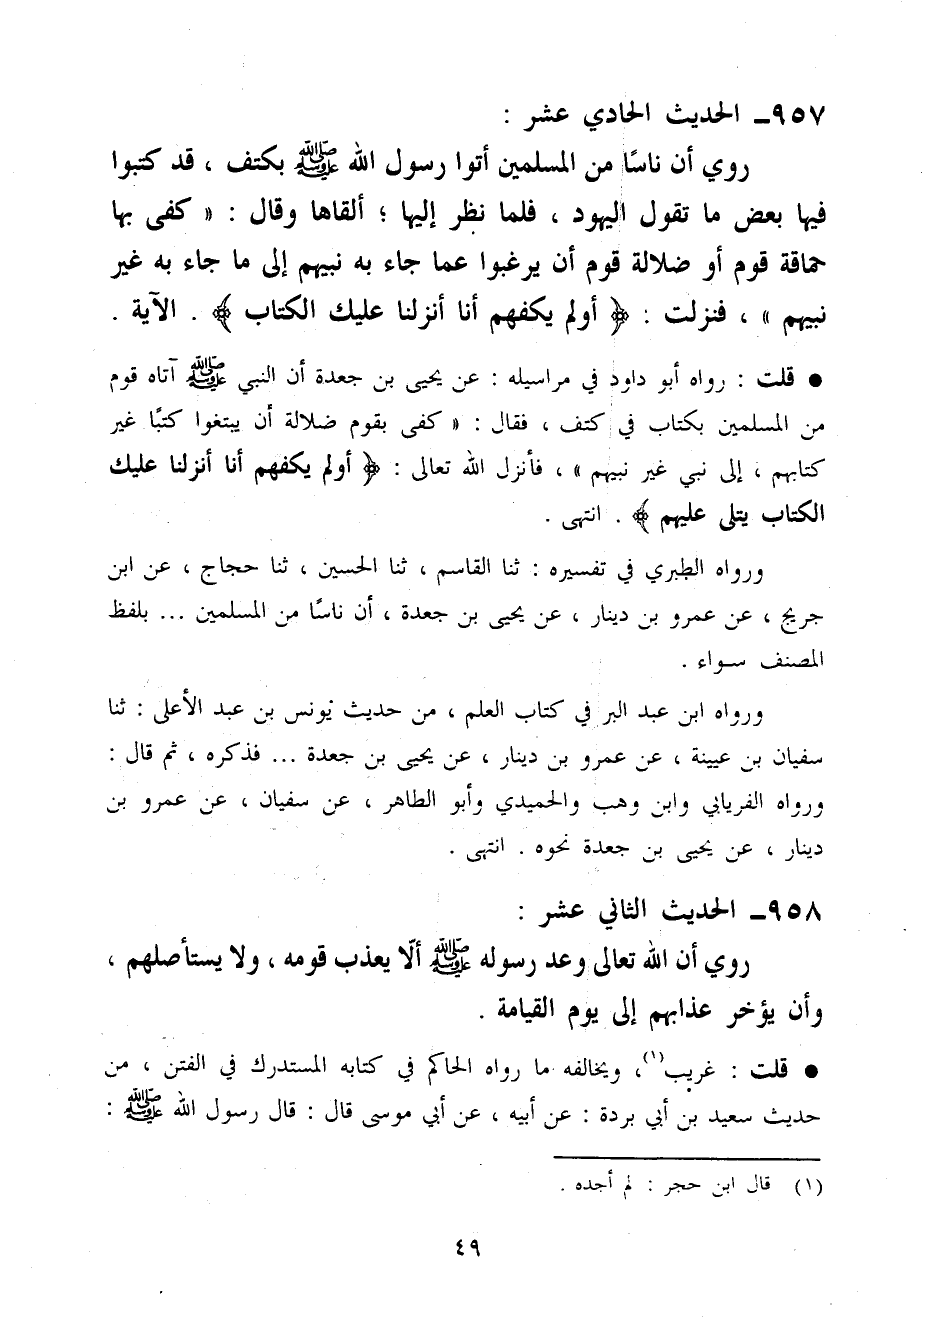 ٩٥٧ـ الحديث الحادي عشر :
روي أن ناسًا من المسلمين أتوا رسول الله ﷺ بكتف ، قد كتبوا
فيها بعض ما تقول اليهود ، فلما نظر إليها ؛ ألقاها وقال : « كفى بها
حماقة قوم أو ضلالة قوم أن يرغبوا عما جاء به نبيهم إلى ما جاء به غير
نبيهم » ، فنزلت : ﴿ أولم يكفهم أنا أنزلنا عليك الكتاب ﴾ . الآية .
● قلت : رواه أبو داود في مراسيله : عن يحيى بن جعدة أن النبي ﷺ آتاه قوم
من المسلمين بكتاب في كتف ، فقال : « كفى بقوم ضلالة أن يبتغوا كتبًا غير
كتابهم ، إلى نبي غير نبيهم » ، فأنزل الله تعالى : ﴿ أولم يكفهم أنا أنزلنا عليك
الكتاب يتلى عليهم ﴾ . انتهى .
ورواه الطبري في تفسيره : ثنا القاسم ، ثنا الحسين ، ثنا حجاج ، عن ابن
جريج ، عن عمرو بن دينار ، عن يحيى بن جعدة ، أن ناسًا من المسلمين ... بلفظ
المصنف سواء .
ورواه ابن عبد البر في كتاب العلم ، من حديث يونس بن عبد الأعلى : ثنا
سفيان بن عيينة ، عن عمرو بن دينار ، عن يحيى بن جعدة ... فذكره ، ثم قال :
ورواه الفريابي وابن وهب والحميدي وأبو الطاهر ، عن سفيان ، عن عمرو بن
دينار ، عن يحيى بن جعدة نحوه . انتهى .
٩٥٨ـ الحديث الثاني عشر :
روي أن الله تعالى وعد رسوله ﷺ ألّا يعذب قومه ، ولا يستأصلهم ،
وأن يؤخر عذابهم إلى يوم القيامة .
● قلت : غريب(١)، ويخالفه ما رواه الحاكم في كتابه المستدرك في الفتن ، من
حديث سعيد بن أبي بردة : عن أبيه ، عن أبي موسى قال : قال رسول الله ﷺ :
(١) قال ابن حجر : لم أجده .
٤٩